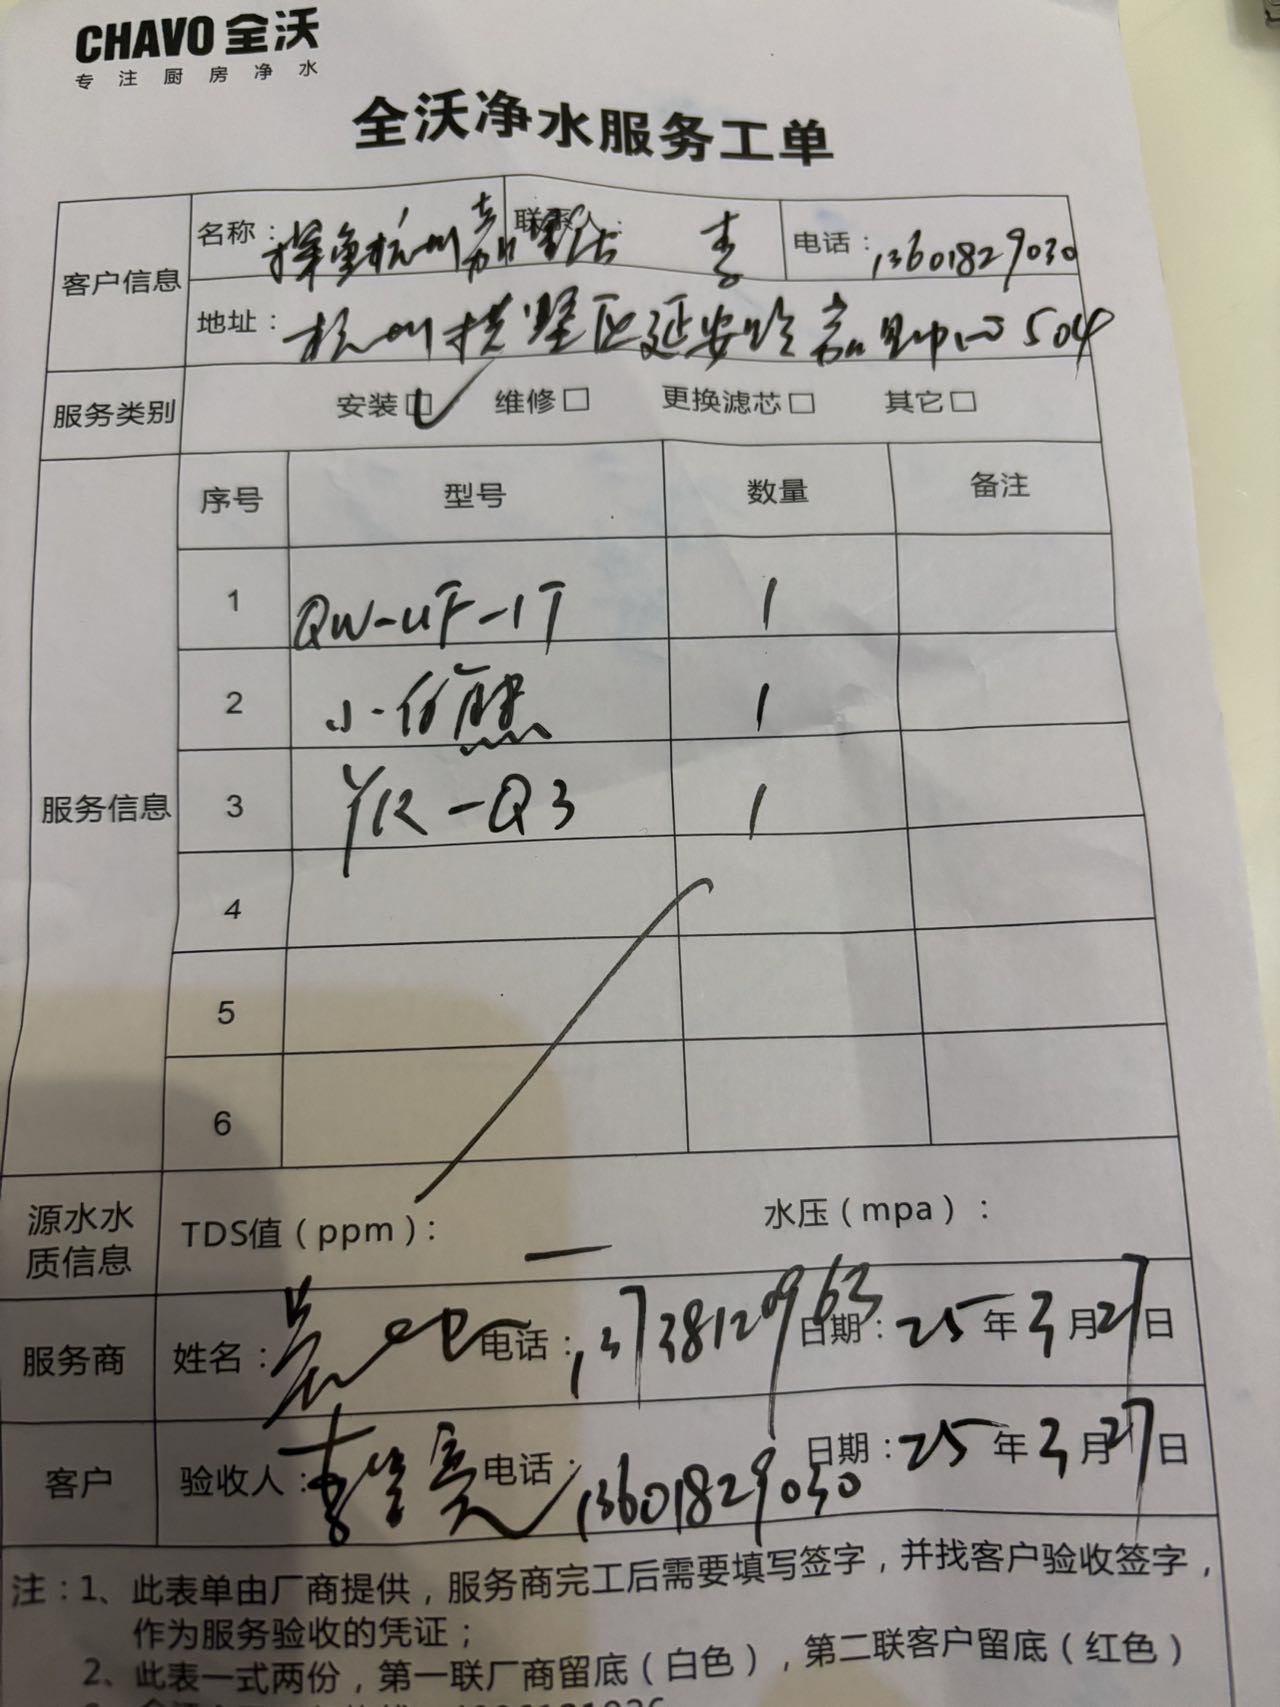 CHAVO 全沃
专注厨房净水
全沃净水服务工单
客户信息
名称：探鱼杭州嘉里店 联系人：李 电话：13601829030
地址：杭州拱墅区延安路嘉里中心504
服务类别 安装☑ 维修□ 更换滤芯□ 其它□
服务信息
序号 型号 数量 备注
1 QW-UF-1T 1
2 小 1
3 YR-Q3 1
4
5
6
源水水质信息 TDS值（ppm）： 水压（mpa）：
服务商 姓名： 电话：13738120963 日期：25年3月27日
客户 验收人：李 亮 电话：13601829030 日期：25年3月27日
注：1、此表单由厂商提供，服务商完工后需要填写签字，并找客户验收签字，
作为服务验收的凭证；
2、此表一式两份，第一联厂商留底（白色），第二联客户留底（红色）